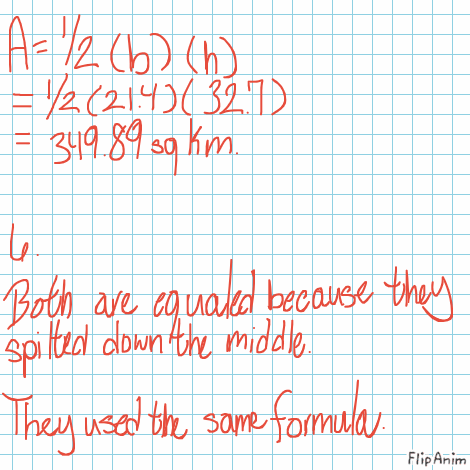 A = 1/2 (b) (h)
= 1/2 (21.4)( 32.7)
= 349.89 sq km.
6.
Both are equaled because they
spilted down the middle.
They used the same formula.
FlipAnim